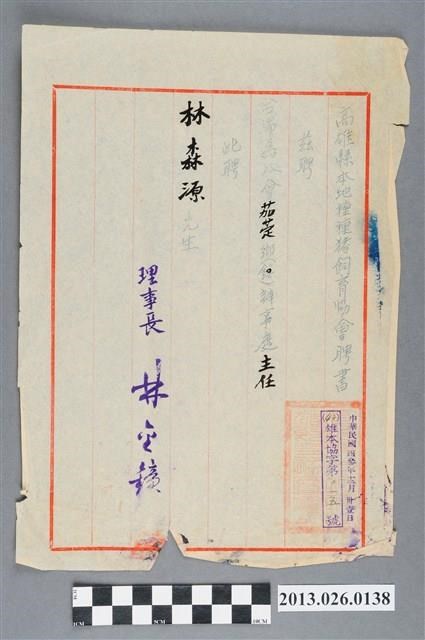 高雄縣本地種種豬飼育協會聘書
茲聘
台端為本會茄萣鄉(鎮)辦事處主任
此聘
林森源先生
理事長 林
中華民國四參年十二月卅壹日
雄本協字第一五號
2013.026.0138
1CM 5CM 10CM